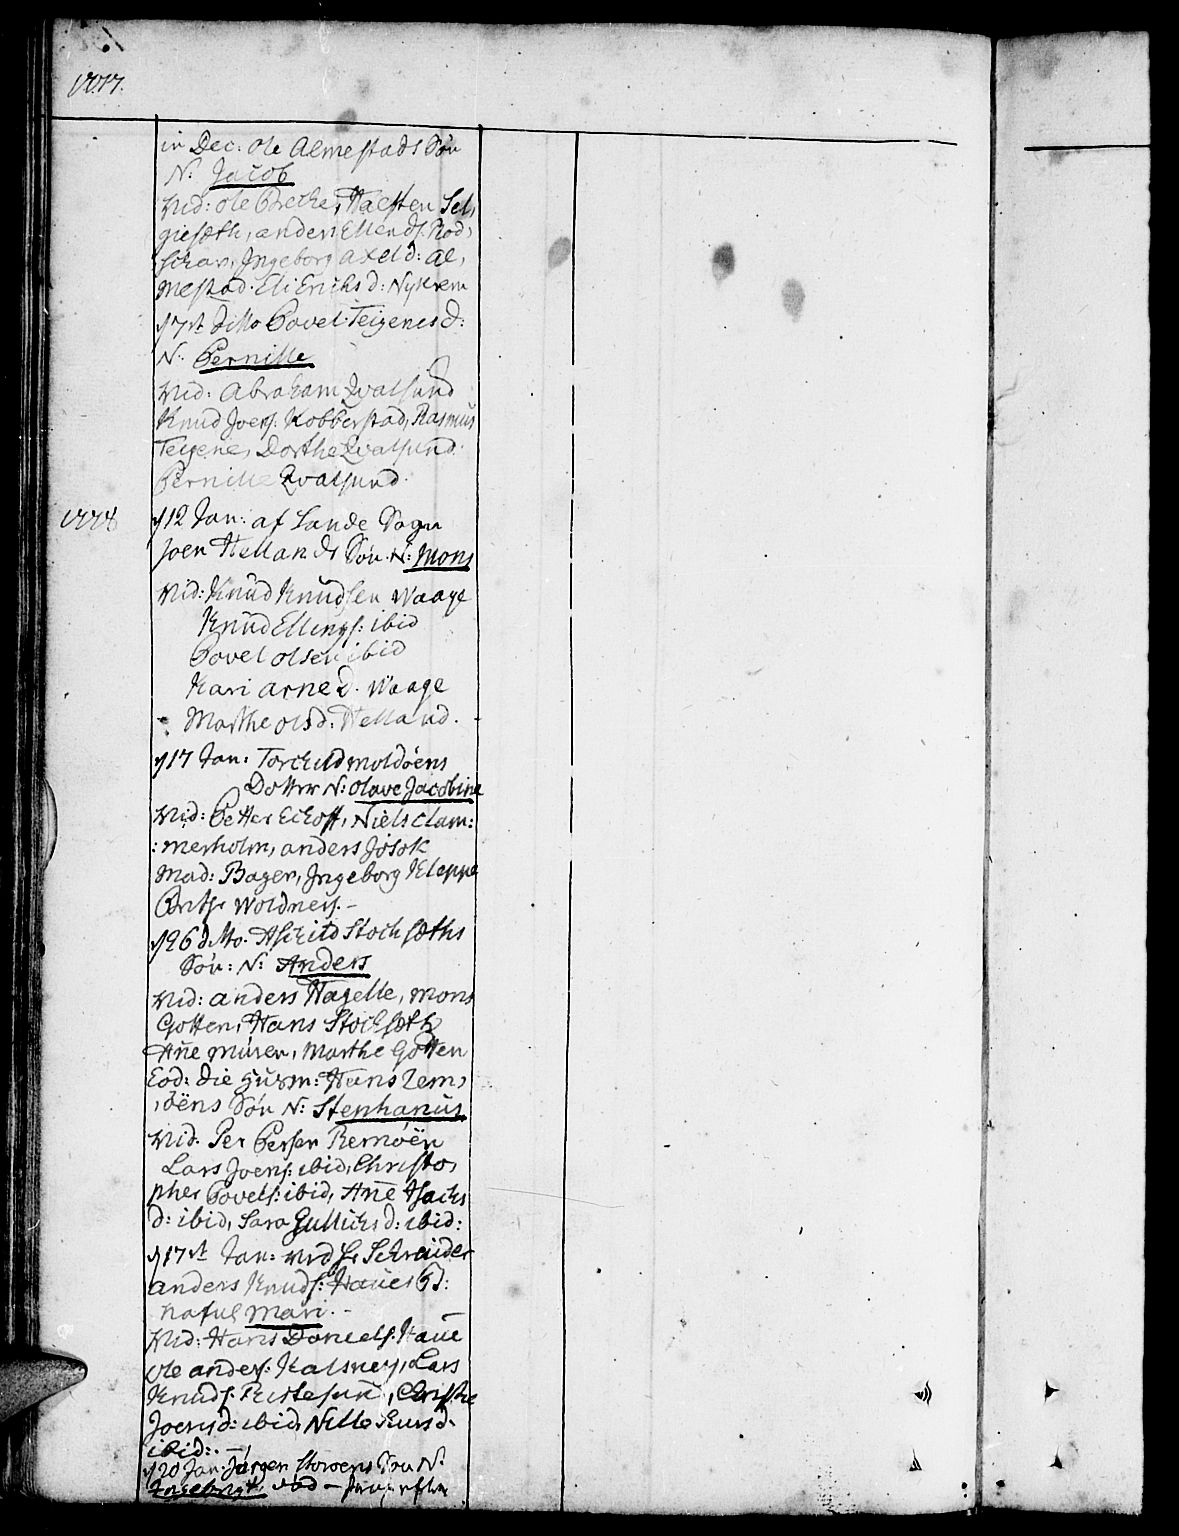 1777.
in Dec: Ole Almestads Søn
N: Jacob
Vid: Ole Brecke, Halsten Sel,
giesæth, anders Ellends. Rod,
schar, Ingeborg Axeld: Al,
mestad. Eli Erichsd: Nykrem
d 7st ditto Povel Teigenes d:
N: Pernille
Vid: Abraham Qvalsund
Knud Joens. Kobberstad, Rasmus
Teigene, Dorthe Qvalsund
Pernille Qvalsund.
1778 d 12 Jan: af Lande Sogn
Joen Hellands Søn N: Mons
Vid: Knud Knudsen Waage
Knud Ellings: ibid
Povel olsen ibid
Kari arne d. Waage
Marthe olsd: Helland.
d 17 Jan: Torckild moldøens
Dotter N: Olave Jacobine
Vid: Petter Eckoff, Niels Clam:
:merholm, anders Jøsok
Mad: Bager, Ingeborg Kleppe
Woldnes. -
d 26 ditto. Askild Stochsæths
Søn: N: Anders
Vid: anders Hagelle, mons
Gotten, Hans Stochsæth
Ane muren, Marthe Gotten
Eod: die Hans Rem,
,øens Søn N: Stephanus
Vid. Per Persen Remøen
Lars Joens: ibid, Christo,
pher Povels: ibid, Ane Isachs
d: ibid, Sara Gullichs d: ibid:
d 17st Jan: Schreuder
anders Knuds: Haues B:
naful Mari. -
Vid: Hans Daniels. Haue
Ole anders: Kalsnes, Lars
Knuds. , Christie
Joensd: ibid, Nille Lars d.
ibid: . -
d 20 Jan. Jørgen Søn N:
Ingebrigt